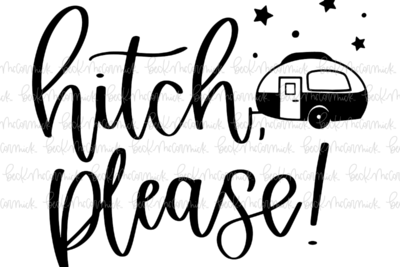 hitch,
please!